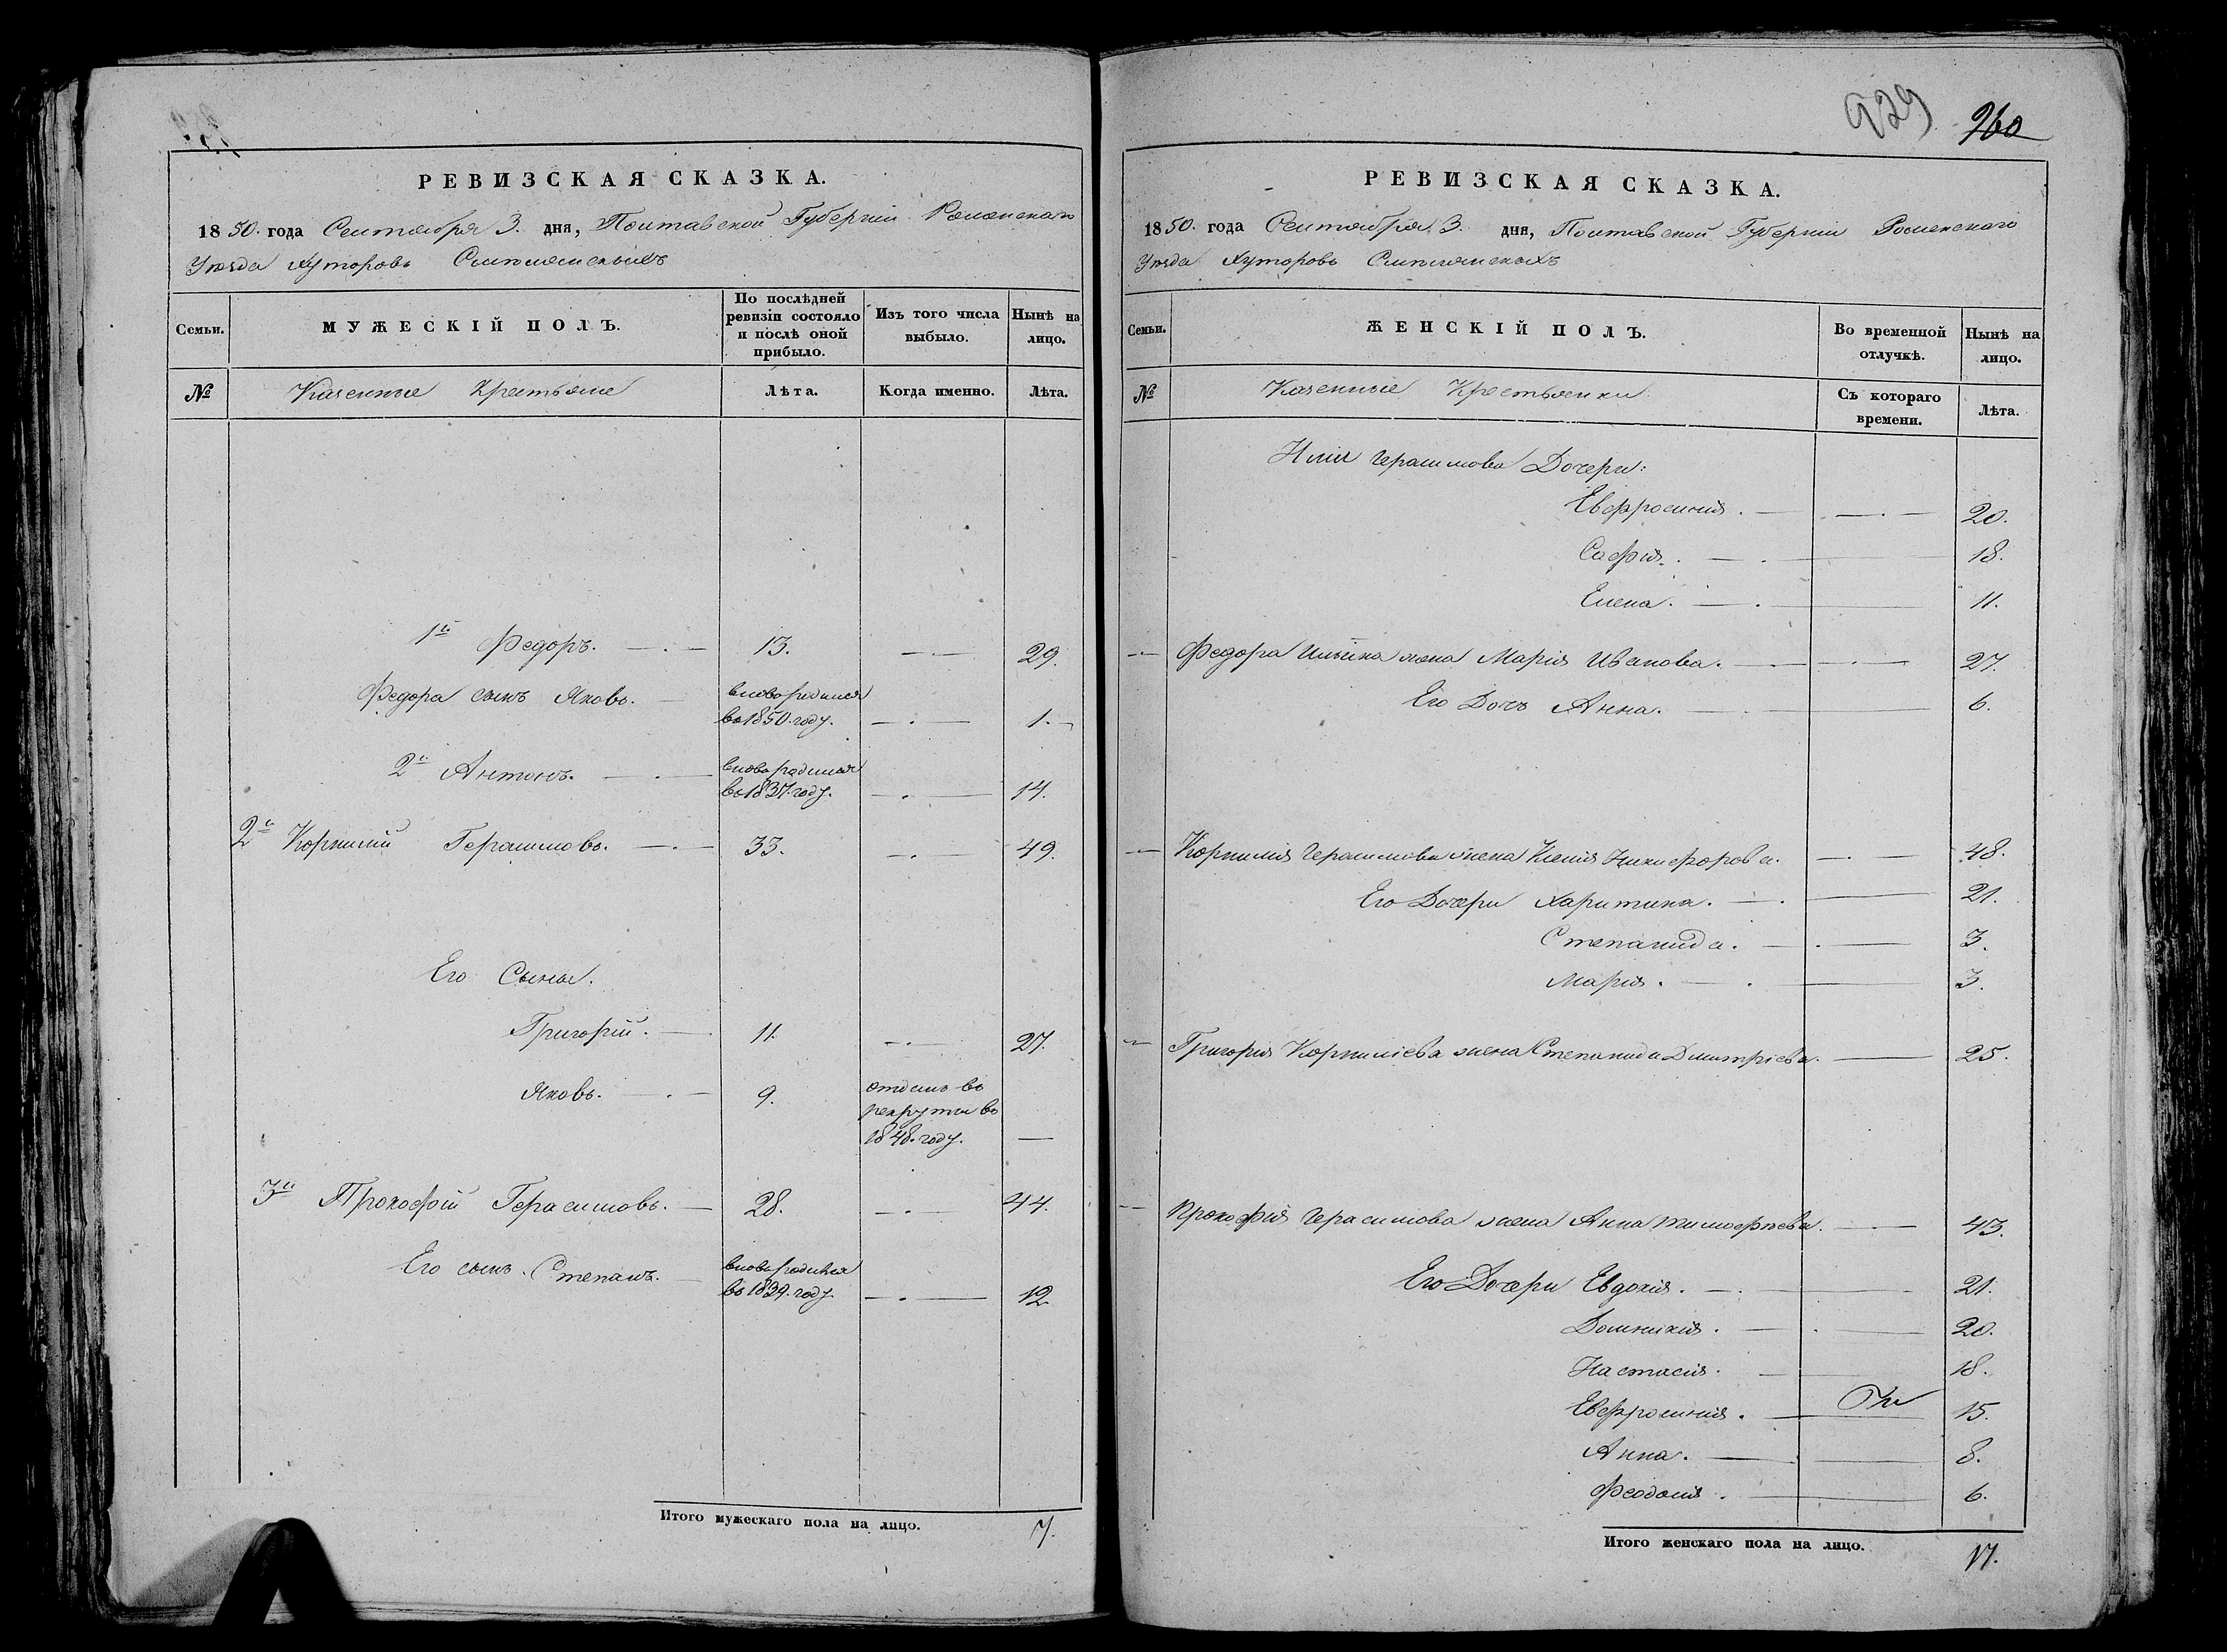 РЕВИЗСКАЯ СКАЗКА.
1850. года Сентября 3. дня, Полтавской Губерніи Роменскаго
Уѣзда Хуторовъ
Семьи.
МУЖЕСКІЙ ПОЛЪ.
По послѣдней ревизіи состояло и послѣ оной прибыло.
Изъ того числа выбыло.
Нынѣ на лицо.
№
Казенные Крестьяне
Лѣта.
Когда именно.
Лѣта.
1й Федоръ. 13. 29.
Федора сынъ Яковъ. вновь родился
въ 1850. году. 1.
2й Антонъ. вновь родился
въ 1837. году. 14.
2й Корнилій Герасимовъ. 33. 49.
Его Сыны.
Григорій. 11. 27.
Яковъ. 9. отданъ въ
рекруты въ
1848. году. —
3й Прокофій Герасимовъ. 28. 44.
Его сынъ Степанъ. вновь родился
въ 1839. году. 12
Итого мужескаго пола на лицо. 7.
929 960
РЕВИЗСКАЯ СКАЗКА.
1850. года Сентября 3. дня, Полтавской Губерніи Роменскаго
Уѣзда Хуторовъ
Семьи.
ЖЕНСКІЙ ПОЛЪ.
Во временной отлучкѣ.
Нынѣ на лицо.
№
Казенные Крестьянки
Съ котораго времени.
Лѣта.
Ильи Герасимова Дочери:
Евфросинія. 20.
Софія. 18.
Елена. 11.
Федора Ильина жена Марія Иванова. 27.
Его Дочь Анна. 6.
Корнилія Герасимова жена Ксенія Никифорова. 48.
Его Дочери Харитина. 21.
Степанида. 3.
Марія. 3.
Григорія Корниліева жена Степанида Дмитріева. 25.
Прокофія Герасимова жена Анна Тимофѣева. 43.
Его Дочери Евдокія. 21.
Домникія. 20.
Настасія. 18.
Евфросинія. 15.
Анна. 8.
Феодосія. 6.
Итого женскаго пола на лицо. 17.